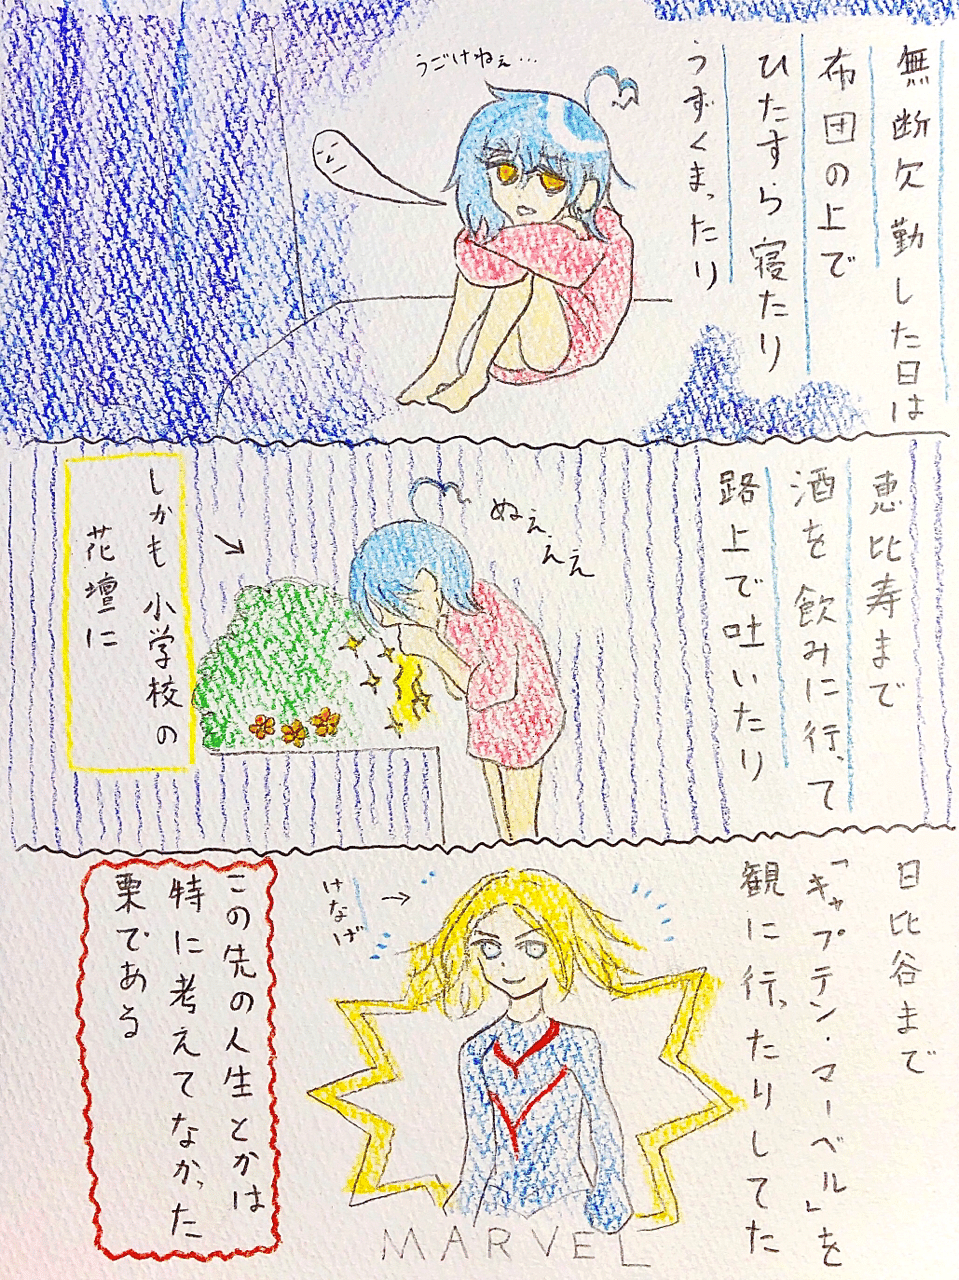 無断欠勤した日は
布団の上で
ひたすら寝たり
うずくまったり
うごけねぇ…
恵比寿まで
酒を飲みに行って
路上で吐いたり
ぬぇぇぇ
しかも小学校の
花壇に
日比谷まで
「キャプテン・マーベル」を
観に行ったりしてた
けなげ
MARVEL
この先の人生とかは
特に考えてなかった
栗である